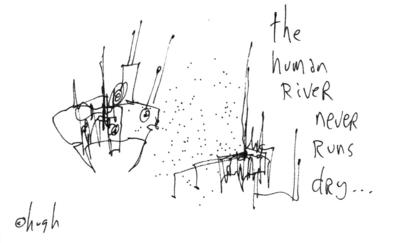 the
human
RiveR
never
Runs
dry...
©hugh